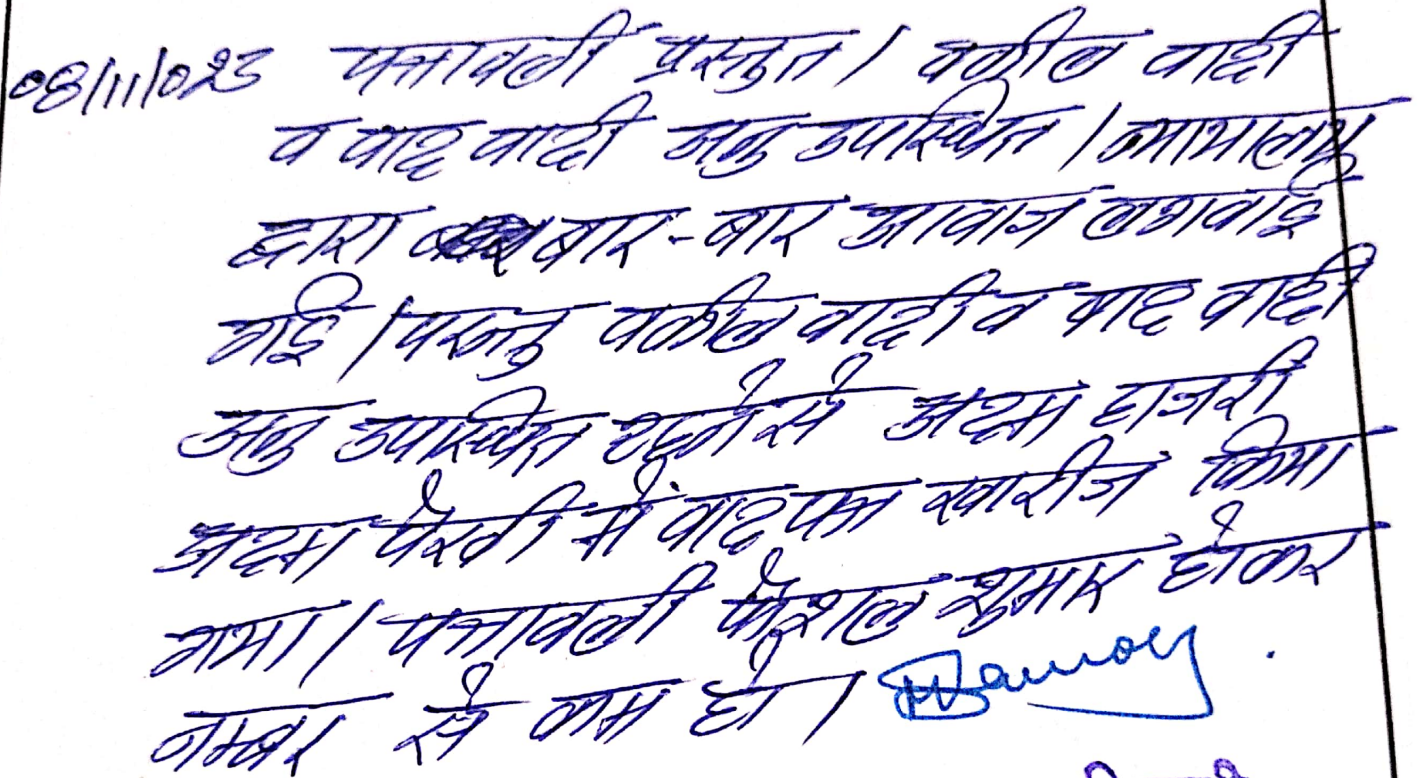 08/11/023 पत्रावली प्रस्तुत। वकील वादी
व वाद वादी अनु उपस्थित। न्यायालय
द्वारा बार-बार आवाज लगवाई
गई। परन्तु वकील वादी व वाद वादी
अनु उपस्थित रहने से अदम हाजरी
अदम पैरवी में वाद पत्र खारीज किया
गया। पत्रावली फैशल शुमार होकर
नम्बर से कम हो।